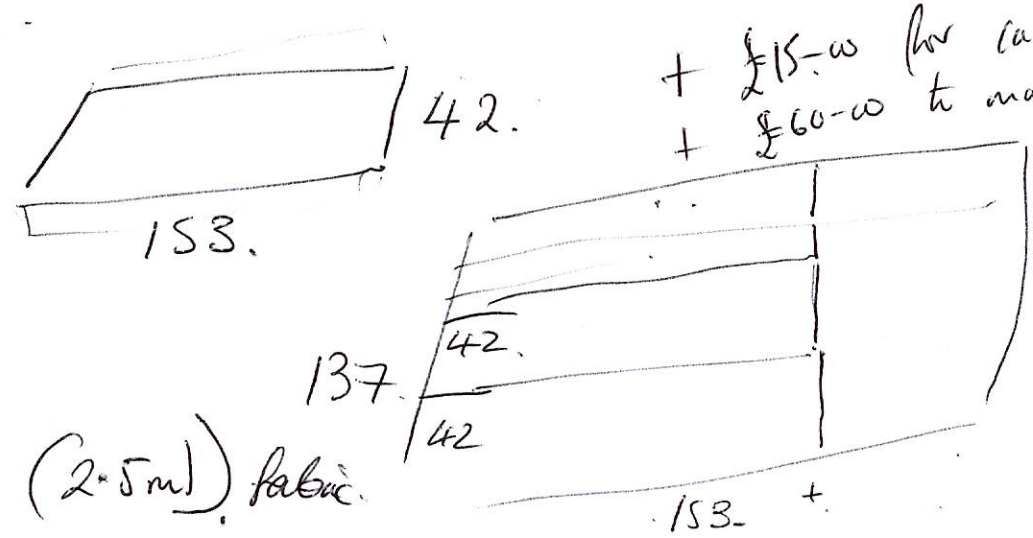 + £15-00 for ca
42.
+ £60-00 to ma
153.
42.
137.
42
(2.5m) fabric.
153- +